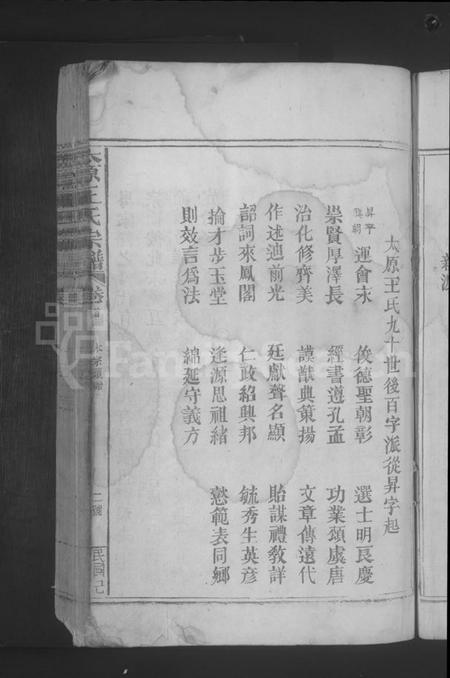 太原王氏九十世後百字派從昇字起
昇平 運會末 俊德聖朝彰 選士明良慶
崇賢厚澤長 經書遵孔孟 功業頌虞唐
治化修齊美 謨猷典策揚 文章傳遠代
作述迪前光 廷獻聲名顯 貽謀禮教詳
詔詞來鳳閣 仁政紹興邦 毓秀生英彥
掄才步玉堂 逢源思祖緒 懿範表同鄉
則效言爲法 綿延守義方
太原王氏宗譜
二號
民國己
新源